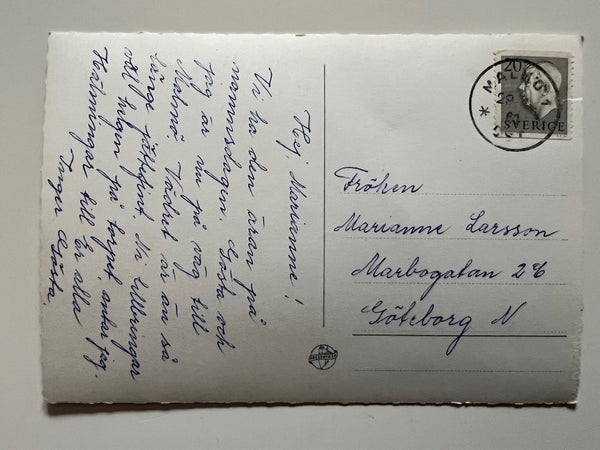 Hej, Marianne!
Vi ha den äran på
namnsdagen. Gösta och
jag är nu på väg till
Malmö. Vädret är än så
länge jättefint. Ni tillbringar
väl helgen på torpet, antar jag.
Hälsningar till Er alla
Inger Gösta.
Fröken
Marianne Larsson
Marbogatan 2
Göteborg N
20
SVERIGE
MALMÖ 1